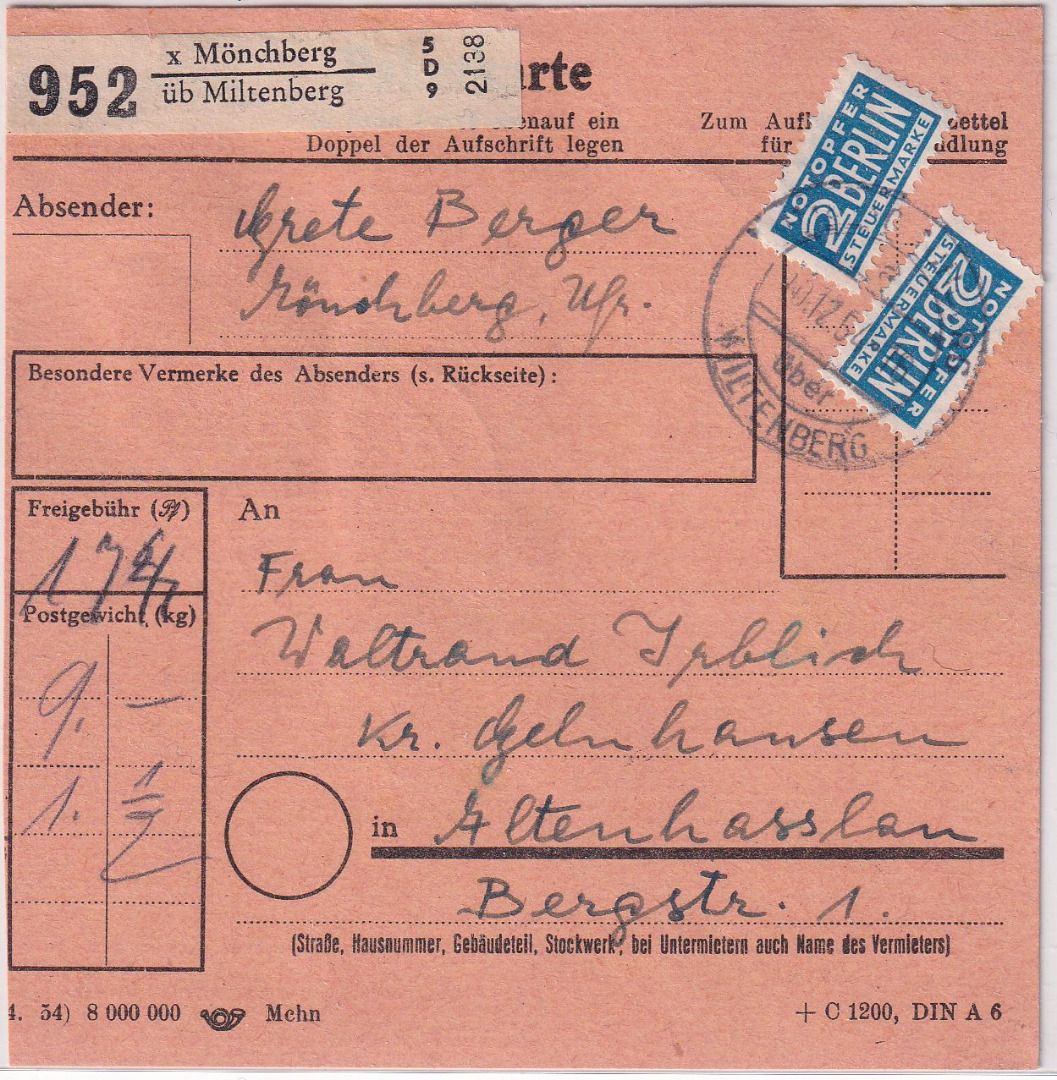 952
x Mönchberg
üb Miltenberg
5
D
9
2138
arte
enauf ein
Doppel der Aufschrift legen
Zum Aufk ettel
für dlung
NOTOPFER
2 BERLIN
STEUERMARKE
NOTOPFER
2 BERLIN
STEUERMARKE
über
MILTENBERG
Absender:
Grete Berger
Mönchberg, Ufr.
Besondere Vermerke des Absenders (s. Rückseite):
Freigebühr (Pf)
Postgewicht (kg)
9. –
1. 1/2
An
Frau
Waltraud
Kr. Gelnhausen
in Altenhasslau
Bergstr. 1.
(Straße, Hausnummer, Gebäudeteil, Stockwerk, bei Untermietern auch Name des Vermieters)
4. 54) 8 000 000 Mehn
+ C 1200, DIN A 6